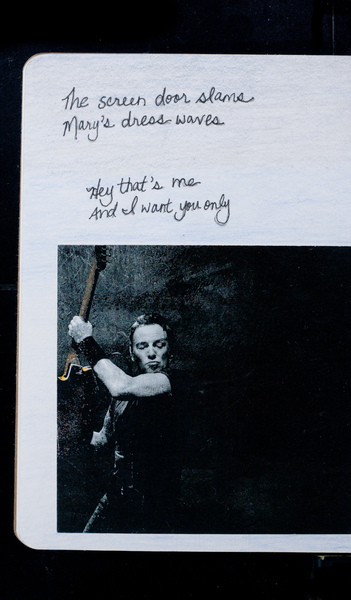 The screen door slams
Mary's dress waves
Hey that's me
And I want you only